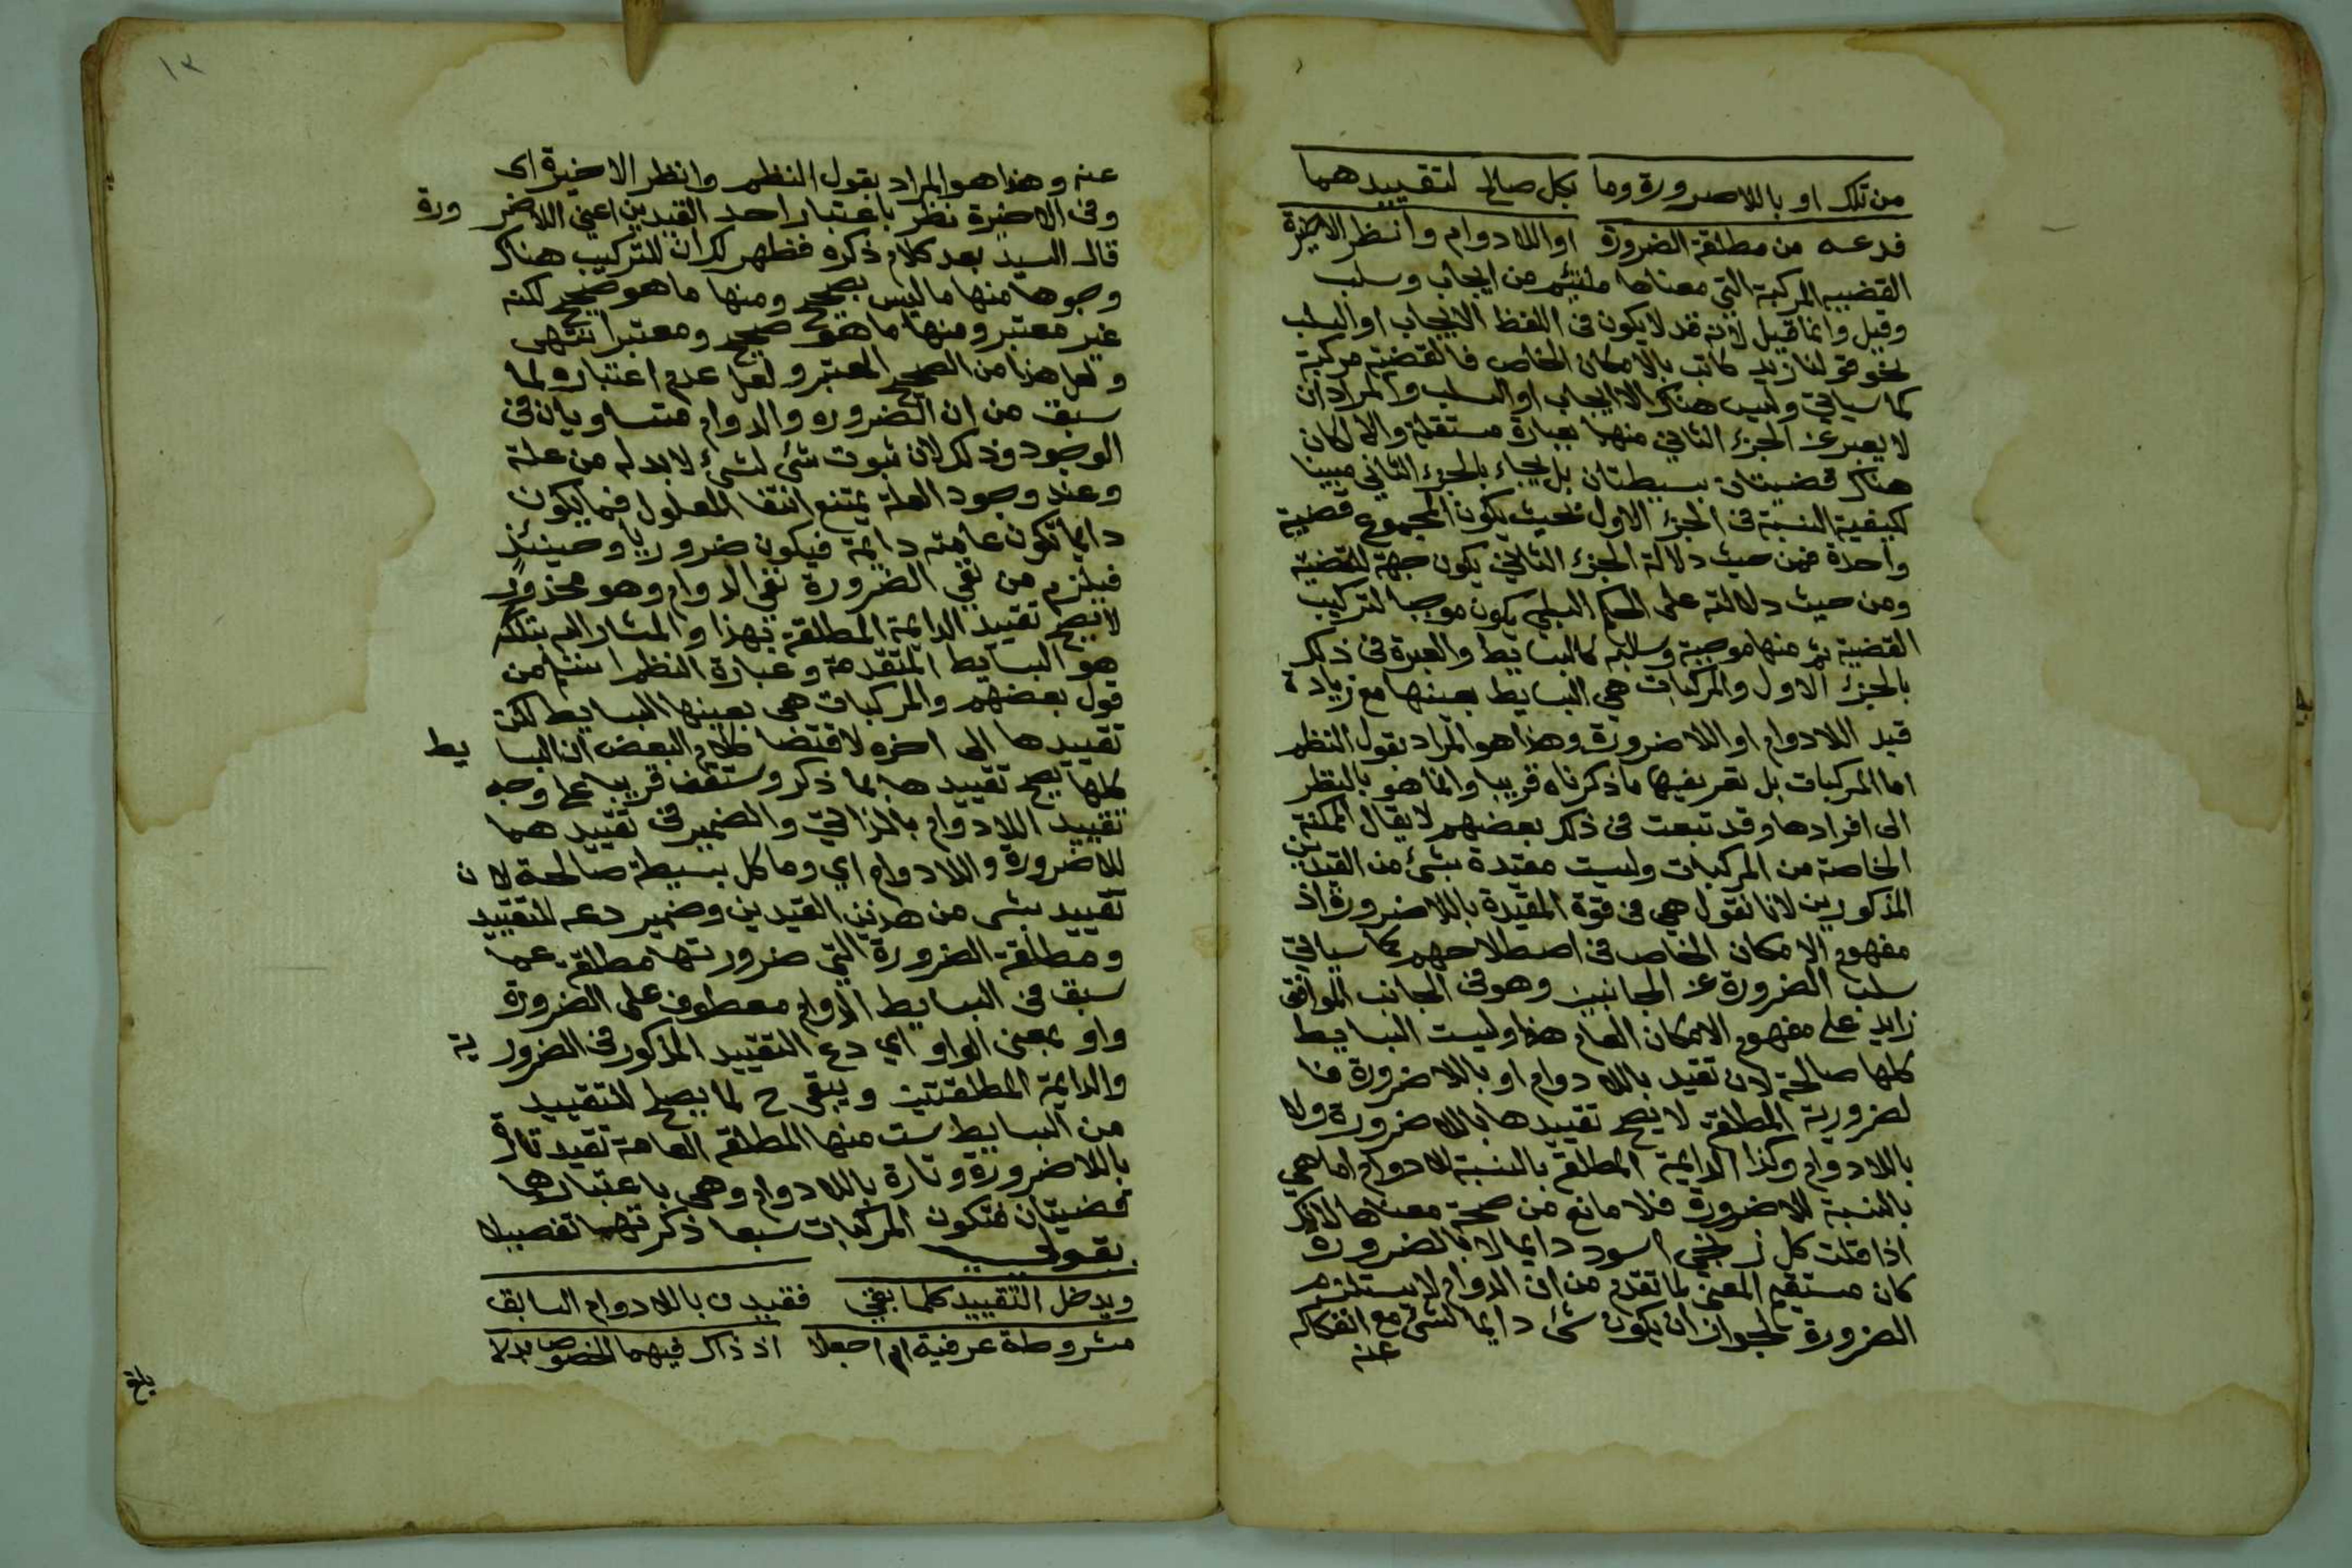 من تلك او باللاضرورة وما بكل صالح لتقييدهما
فدعه من مطلقة الضرورة او اللادوام وانظر الاخيرة
القضيه المركبة التي معناها ملتئم من ايجاب وسلب
وقيل وانما قيل لانه قد لا يكون في اللفظ الايجاب او السلب
نحو قولنا زيد كاتب بالامكان الخاص فالقضية مركبة
كما سياتي وليس هناك الا الايجاب او السلب والمراد ان
لا يعبر عن الجزء الثاني منها بعبارة مستقلة والا لكان
هناك قضيتان بسيطتان بل يجاء بالجزء الثاني مبينا
لكيفية النسبة في الجزء الاول بحيث يكون المجموع قضية
واحدة فمن حيث دلالة الجزء الثاني يكون جهة للقضية
ومن حيث دلالته على الحكم السلبي يكون موجبا لتركيب
القضية ثم منها موجبة وسالبة كالبسايط والعبرة في ذلك
بالجزء الاول والمركبات هي البسايط بعينها مع زيادة
قيد اللادوام او اللاضرورة وهذا هو المراد بقول النظم
اما المركبات بل تعريفها ما ذكرناه قريبا وانما هو بالنظر
الى افرادها وقد تبعت في ذلك بعضهم لا يقال الممكنة
الخاصة من المركبات وليست مقيدة بشئ من القيدين
المذكورين لانا نقول هي في قوة المقيدة باللاضرورة اذ
مفهوم الامكان الخاص في اصطلاحهم كما سياتي
سلب الضرورة عن الجانبين وهو في الجانب الموافق
زايد على مفهوم الامكان العام هذا وليست البسايط
كلها صالحة لان تقيد باللادوام او باللاضرورة فا
لضرورية المطلقة لا يصح تقييدها باللاضرورة ولا
باللادوام وكذا الدايمة المطلقة بالنسبة للادوام اما هي
بالنسبة للاضرورة فلا مانع من صحة معناها لانك
اذا قلت كل زنجي اسود دايما لا بالضرورة
كان مستقيم المعنى لما تقدم من ان الدوام لا يستلزم
الضرورة لجواز ان يكون شئ دايما لشئ مع انفكاكه
عنه
١٣
عنه وهذا هو المراد بقول النظم وانظر الاخيرة اى
وفي الاخيرة نظر باعتبار احد القيدين اعني اللاضرورة
قال السيد بعد كلام ذكره فظهر لك ان للتركيب هناك
وجوها منها ما ليس بصحيح ومنها ما هو صحيح لكنه
غير معتبر ومنها ما هو صحيح ومعتبر انتهى
ولعل هذا من الصحيح المعتبر ولعل عدم اعتباره لما
سبق من ان الضروره والدوام متساويان في
الوجود وذلك لان ثبوت شئ لشئ لا بد له من علة
وعند وجود العلة يمتنع انتفا المعلول فما يكون
دايما تكون علته دايمة فيكون ضروريا وحينئذ
فيلزم من نفي الضرورة نفي الدوام وهو محذور
لا يصح تقييد الدايمة المطلقة بهذا والمشار اليه بتلك
هو البسايط المتقدمة وعبارة النظم انسب من
قول بعضهم والمركبات هي بعينها البسايط لكن
تقييدها الى اخره لاقتضا كلام البعض ان البسايط
كلها يصح تقييدها بما ذكر وستقف قريبا على وجه
تقييد اللادوام بالذاتي والضمير في تقييدهما
للاضرورة واللادوام اي وما كل بسيطة صالحة لان
تقييد بشى من هذين القيدين وضمير دعه للتقييد
ومطلقة الضرورة التي ضرورتها مطلقة عما
سبق في البسايط الدوام معطوف على الضرورة
واو بمعنى الواو اي دع التقييد المذكور في الضرورية
والدايمة المطلقتين ويبقى ح لما يصح للتقييد
من البسايط ست منها المطلقة العامة تقيد تارة
باللاضرورة وتارة باللادوام وهي باعتبارها
قضيتان فتكون المركبات سبعا ذكرتها تفصيلا
بقولي
ويدخل التقييد كلما بقي فقيدن باللادوام السابق
مشروطة عرفية ام اجعلا اذ ذاك فيهما الخصوص بدلا
بلغ